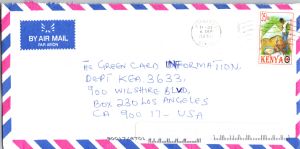 BY AIR MAIL
PAR AVION
KENYA
THE GREEN CARD INFORMATION.
DEPT KEA 3633,
900 WILSHIRE BLVD,
BOX 230 LOS ANGELES
CA 90017 - USA